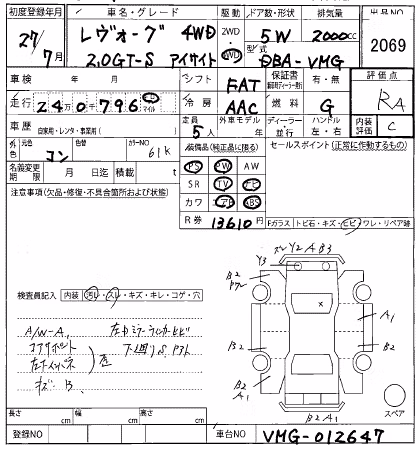 初度登録年月 車名・グレード 駆動 ドア数・形状 排気量 出品NO
27/7月 レヴォーグ 4WD 2WD 5W 2000cc 2069
2.0GT-S アイサイト 4WD 型式 DBA-VMG
車検 年 月 シフト FAT 保証書 有・無 評価点
走行 240796 km マイル 冷房 AAC 燃料 G RA
車歴 自家用・レンタ・事業用( ) 定員 5人 外車モデル年 ディーラー・並行 ハンドル 左・右 内装評価 C
外色 元色 コン 色替 カラーNO 61K 装備品(純正品に限る) セールスポイント(正常に作動するもの)
名義変更期限 月 日迄 積載 t PS PW AW
注意事項(欠品・修復・不具合箇所および状態) SR TV ナビ
カワ エアB ABS
R券 13610円 Fガラス トビ石・キズ・ヒビ・ワレ・リペア跡
Y2 A B3
Y3
B2
A1
検査員記入 内装 汚レ・スレ・キズ・キレ・コゲ・穴
A/W-A
コアサポート
B2 B2
キズ B
B2 A1
スペア
B2 A1
長さ cm 幅 cm 高さ cm
登録NO 車台NO VMG-012647